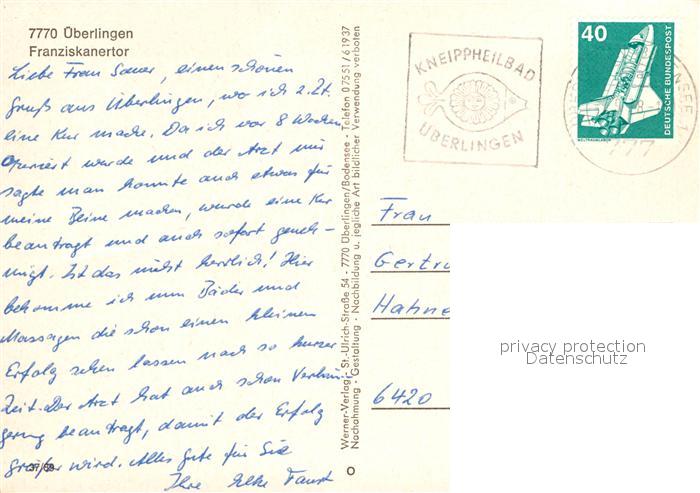 7770 Überlingen
Franziskanertor
Liebe Frau Sauer, einen schönen
Gruß aus Überlingen, wo ich z. Zt.
eine Kur mache. Da ich vor 8 Wochen
operiert wurde und der Arzt mir
sagte man könnte auch etwas für
meine Beine machen, wurde eine Kur
beantragt und auch sofort geneh-
migt. Ist das nicht herrlich! Hier
bekomme ich nun Bäder und
Massagen die schon einen kleinen
Erfolg sehen lassen nach so kurzer
Zeit. Der Arzt hat auch schon Verlän-
gerung beantragt, damit der Erfolg
größer wird. Alles gute für Sie
Ihre Elke Faust
37/69
Werner-Verlag · St.-Ulrich-Straße 54 - 7770 Überlingen/Bodensee · Telefon 07551/61937
Nachahmung · Gestaltung · Nachbildung u. jegliche Art bildlicher Verwendung verboten
KNEIPPHEILBAD
ÜBERLINGEN
40
DEUTSCHE BUNDESPOST
WELTRAUMLABOR
777
Frau
Gertru
Hahne
6420
privacy protection
Datenschutz